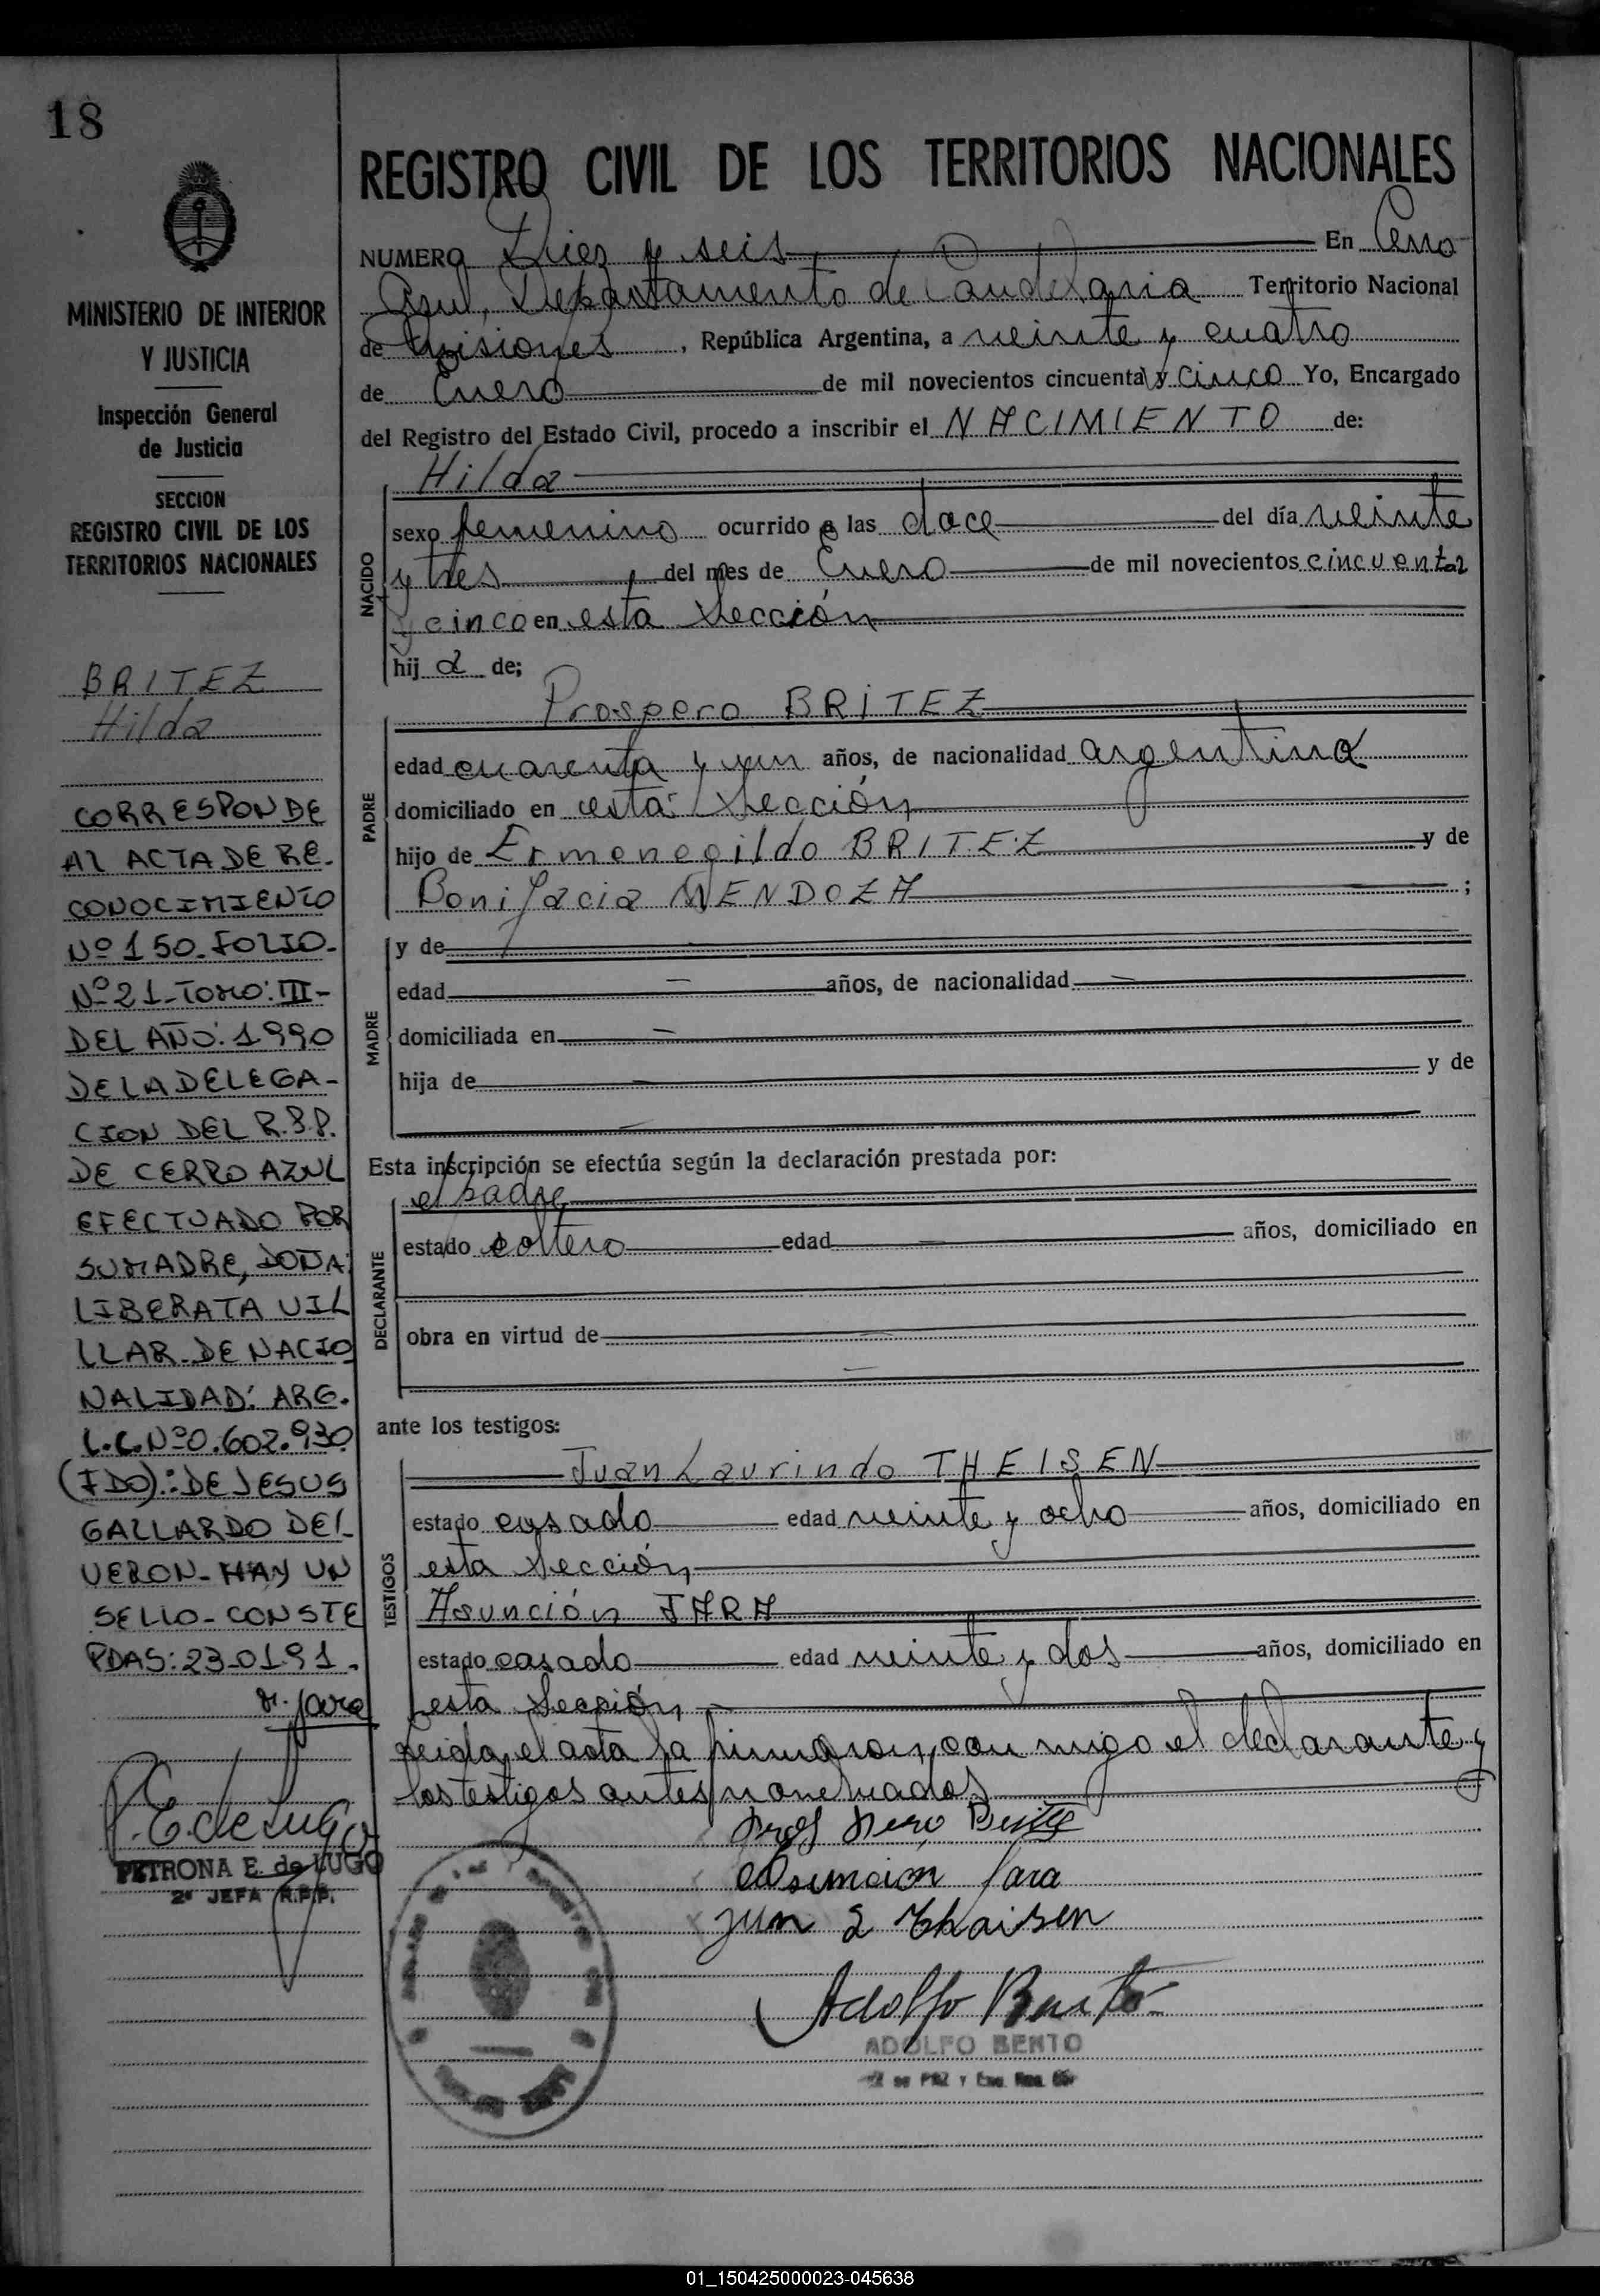 18
MINISTERIO DE INTERIOR
Y JUSTICIA
Inspección General
de Justicia
SECCION
REGISTRO CIVIL DE LOS
TERRITORIOS NACIONALES
BRITEZ
Hilda
CORRESPONDE
AL ACTA DE RE-
CONOCIMIENTO
Nº 150-FOLIO-
Nº 21-TOMO: III-
DEL AÑO: 1990
DE LA DELEGA-
CION DEL R.P.P.
DE CERRO AZUL
EFECTUADO POR
SU MADRE, DOÑA:
LIBERATA VIL
LLAR-DE NACIO
NALIDAD: ARG.
L.C.Nº 0.602.930
(FDO).: DE JESUS
GALLARDO DEL
VERON-HAY UN
SELLO-CONSTE
PDAS: 23-01 91.
Jara
P.E. de Lugo
PETRONA E. de LUGO
2ª JEFA R.P.P.
REGISTRO CIVIL DE LOS TERRITORIOS NACIONALES
NUMERO Diez y seis En Cerro
Azul, Departamento de Candelaria Territorio Nacional
de Misiones, República Argentina, a veinte y cuatro
de Enero de mil novecientos cincuenta y cinco Yo, Encargado
del Registro del Estado Civil, procedo a inscribir el NACIMIENTO de:
NACIDO
Hilda
sexo femenino ocurrido a las doce del día veinte
y tres del mes de Enero de mil novecientos cincuenta
y cinco en esta Sección
hij a de;
PADRE
Prospero BRITEZ
edad cuarenta y un años, de nacionalidad argentina
domiciliado en esta Sección
hijo de Ermenegildo BRITEZ y de
Bonifacia MENDOZA ;
MADRE
y de
edad años, de nacionalidad
domiciliada en
hija de y de
Esta inscripción se efectúa según la declaración prestada por:
DECLARANTE
el padre
estado soltero edad años, domiciliado en
obra en virtud de
ante los testigos:
TESTIGOS
Juan Laurindo THEISEN
estado casado edad veinte y ocho años, domiciliado en
esta Sección
Asunción JARA
estado casado edad veinte y dos años, domiciliado en
esta Sección
Leida el acta la firmaron con migo el declarante y
los testigos antes
Asuncion Jara
Juan L Thaisen
Adolfo Bento
ADOLFO BENTO
01_150425000023-045638